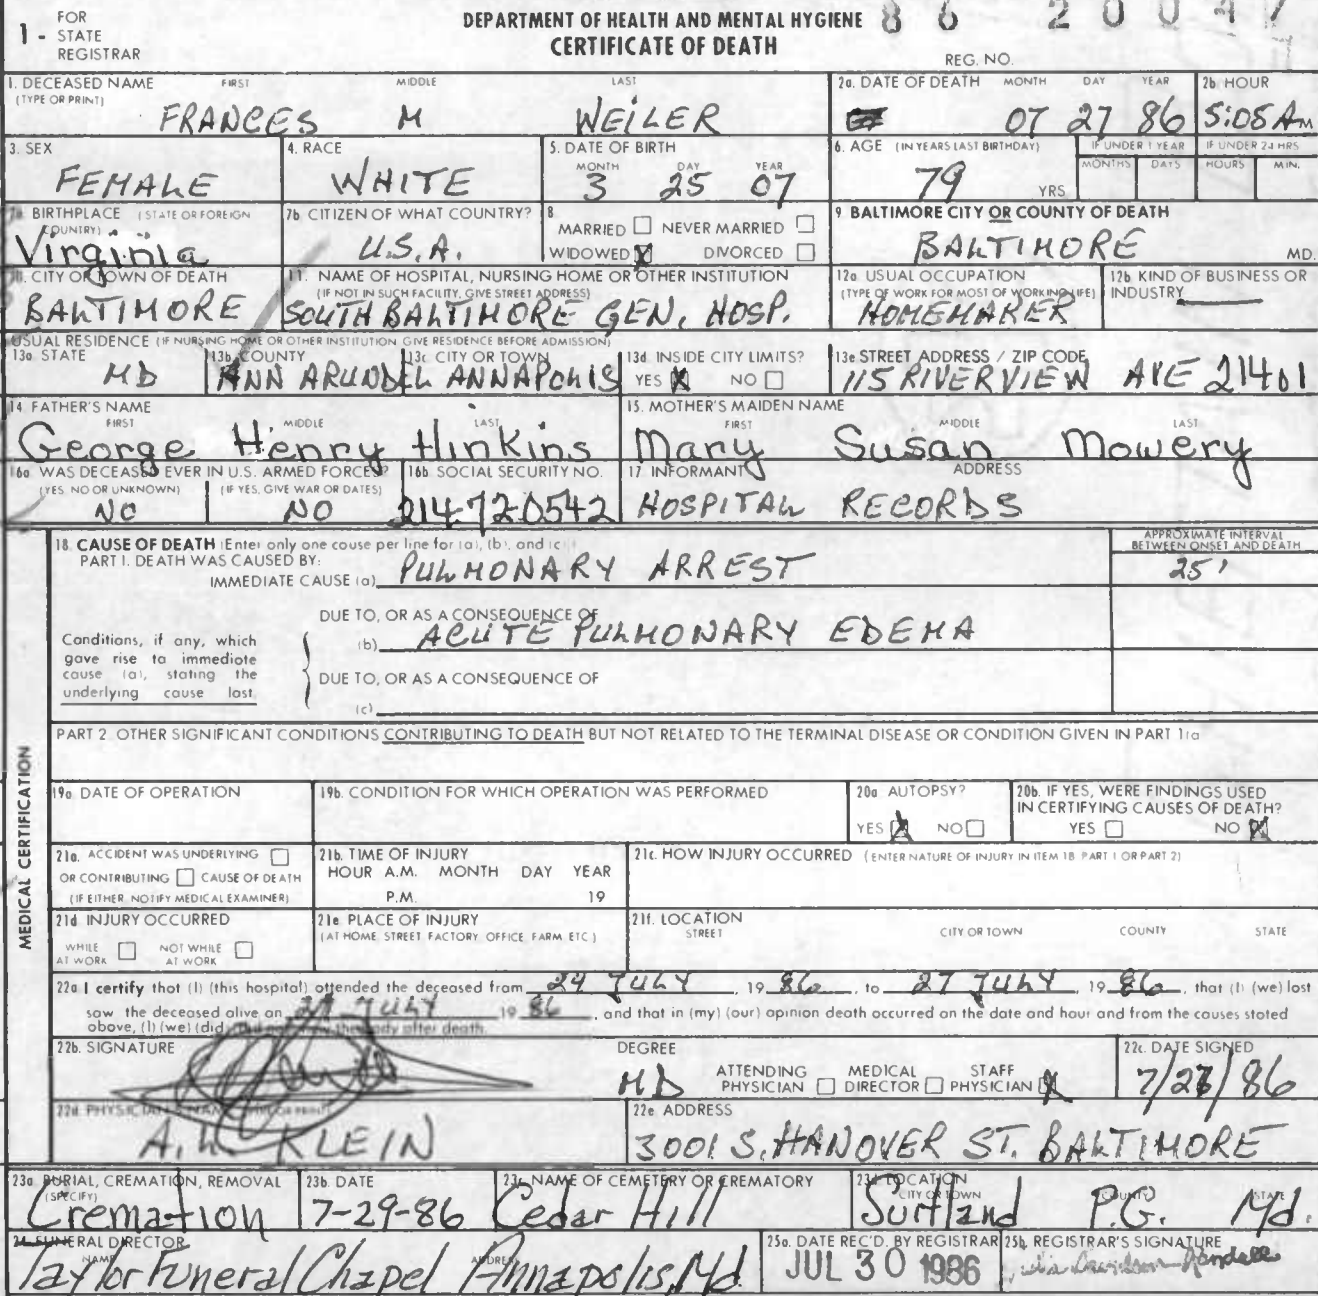 1 - FOR STATE REGISTRAR
DEPARTMENT OF HEALTH AND MENTAL HYGIENE
CERTIFICATE OF DEATH
86 20047
REG. NO.
1. DECEASED NAME (TYPE OR PRINT) FIRST MIDDLE LAST
FRANCES M WEILER
2a. DATE OF DEATH MONTH DAY YEAR
07 27 86
2b. HOUR
5:05 AM
3. SEX
FEMALE
4. RACE
WHITE
5. DATE OF BIRTH
MONTH DAY YEAR
3 25 07
6. AGE (IN YEARS LAST BIRTHDAY)
79 YRS
IF UNDER 1 YEAR
MONTHS DAYS
IF UNDER 24 HRS
HOURS MIN.
7a BIRTHPLACE (STATE OR FOREIGN COUNTRY)
Virginia
7b. CITIZEN OF WHAT COUNTRY?
U.S.A.
8
MARRIED NEVER MARRIED
WIDOWED X DIVORCED
9. BALTIMORE CITY OR COUNTY OF DEATH
BALTIMORE MD.
CITY OR TOWN OF DEATH
BALTIMORE
11. NAME OF HOSPITAL, NURSING HOME OR OTHER INSTITUTION
(IF NOT IN SUCH FACILITY, GIVE STREET ADDRESS)
SOUTH BALTIMORE GEN. HOSP.
12a. USUAL OCCUPATION
(TYPE OF WORK FOR MOST OF WORKING LIFE)
HOMEMAKER
12b. KIND OF BUSINESS OR INDUSTRY
USUAL RESIDENCE (IF NURSING HOME OR OTHER INSTITUTION GIVE RESIDENCE BEFORE ADMISSION)
13a. STATE
MD
13b. COUNTY
ANN ARUNDEL
13c. CITY OR TOWN
ANNAPOLIS
13d. INSIDE CITY LIMITS?
YES X NO
13e. STREET ADDRESS / ZIP CODE
115 RIVERVIEW AVE 21401
14. FATHER'S NAME
FIRST MIDDLE LAST
George Henry Hinkins
15. MOTHER'S MAIDEN NAME
FIRST MIDDLE LAST
Mary Susan Mowery
16a. WAS DECEASED EVER IN U.S. ARMED FORCES?
(YES, NO OR UNKNOWN) (IF YES, GIVE WAR OR DATES)
NO NO
16b. SOCIAL SECURITY NO.
214-72-0542
17. INFORMANT ADDRESS
HOSPITAL RECORDS
MEDICAL CERTIFICATION
18. CAUSE OF DEATH (Enter only one cause per line for (a), (b), and (c))
PART I. DEATH WAS CAUSED BY:
IMMEDIATE CAUSE (a) PULMONARY ARREST
APPROXIMATE INTERVAL BETWEEN ONSET AND DEATH
25'
Conditions, if any, which
gave rise to immediate
cause (a), stating the
underlying cause last.
DUE TO, OR AS A CONSEQUENCE OF
(b) ACUTE PULMONARY EDEMA
DUE TO, OR AS A CONSEQUENCE OF
(c)
PART 2. OTHER SIGNIFICANT CONDITIONS CONTRIBUTING TO DEATH BUT NOT RELATED TO THE TERMINAL DISEASE OR CONDITION GIVEN IN PART 1(a
19a. DATE OF OPERATION
19b. CONDITION FOR WHICH OPERATION WAS PERFORMED
20a. AUTOPSY?
YES X NO
20b. IF YES, WERE FINDINGS USED
IN CERTIFYING CAUSES OF DEATH?
YES NO X
21a. ACCIDENT WAS UNDERLYING
OR CONTRIBUTING CAUSE OF DEATH
(IF EITHER, NOTIFY MEDICAL EXAMINER)
21b. TIME OF INJURY
HOUR A.M. MONTH DAY YEAR
P.M. 19
21c. HOW INJURY OCCURRED (ENTER NATURE OF INJURY IN ITEM 18 PART 1 OR PART 2)
21d. INJURY OCCURRED
WHILE AT WORK NOT WHILE AT WORK
21e. PLACE OF INJURY
(AT HOME, STREET, FACTORY, OFFICE, FARM, ETC.)
21f. LOCATION
STREET CITY OR TOWN COUNTY STATE
22a. I certify that (I) (this hospital) attended the deceased from 24 JULY, 19 86, to 27 JULY, 19 86, that (I) (we) last
saw the deceased alive on 27 JULY 19 86, and that in (my) (our) opinion death occurred on the date and hour and from the causes stated
above, (I) (we) (did) view the body after death.
22b. SIGNATURE
DEGREE
MD
ATTENDING PHYSICIAN
MEDICAL DIRECTOR
STAFF PHYSICIAN X
22c. DATE SIGNED
7/27/86
22d. PHYSICIAN'S NAME (TYPE OR PRINT)
KLEIN
22e. ADDRESS
3001 S. HANOVER ST. BALTIMORE
23a. BURIAL, CREMATION, REMOVAL (SPECIFY)
Cremation
23b. DATE
7-29-86
23c. NAME OF CEMETERY OR CREMATORY
Cedar Hill
23d. LOCATION
CITY OR TOWN COUNTY STATE
Suitland P.G. Md.
24. FUNERAL DIRECTOR
NAME ADDRESS
Taylor Funeral Chapel Annapolis, Md
25a. DATE REC'D. BY REGISTRAR
JUL 30 1986
25b. REGISTRAR'S SIGNATURE
Davidson-Randall